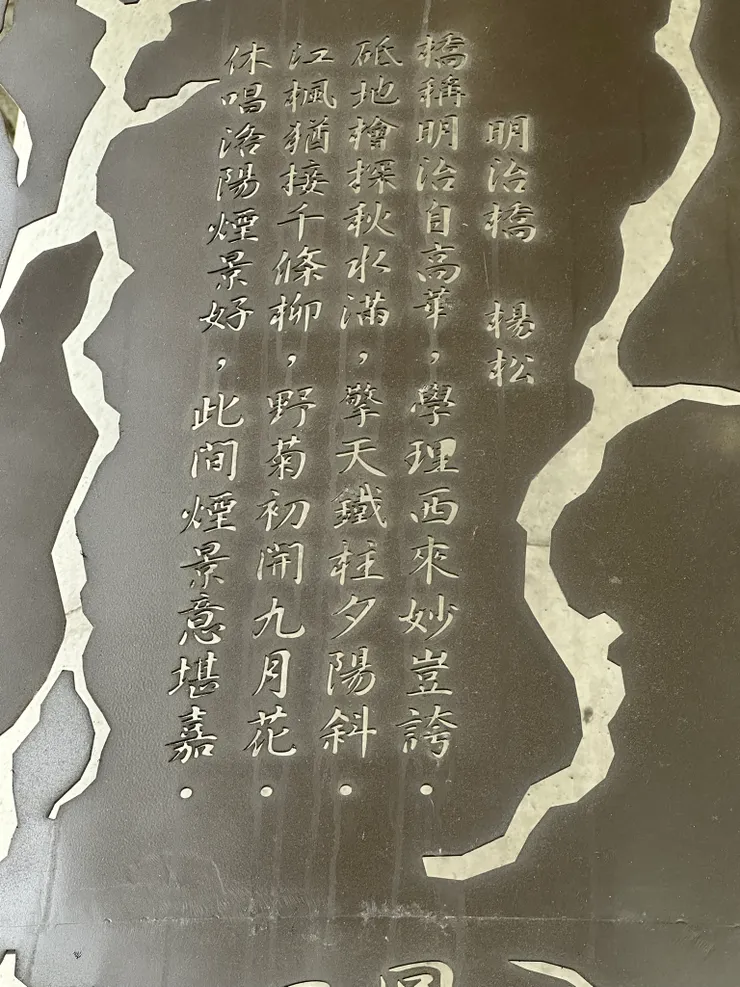 明治橋　楊松
橋稱明治自高華，學理西來妙豈誇．
砥地檜探秋水滿，擎天鐵柱夕陽斜．
江楓猶接千條柳，野菊初開九月花．
休唱洛陽煙景好，此間煙景意堪嘉．